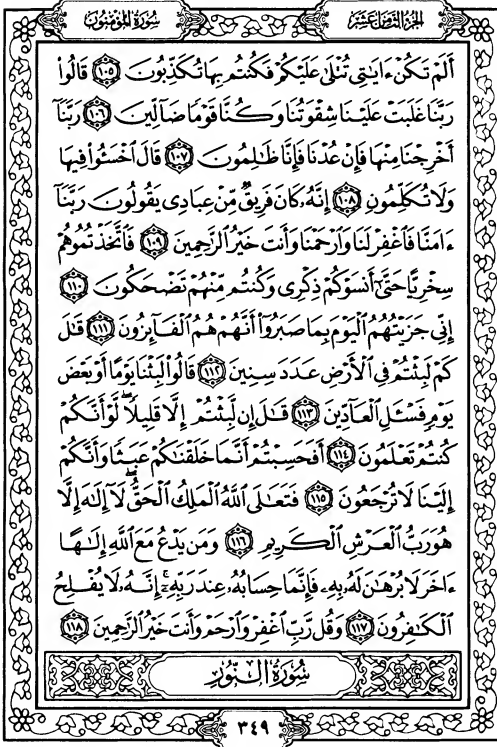 سُورَةُ المُؤۡمِنُونَ الجُزۡءُ الثَّامِنَ عَشَرَ
أَلَمۡ تَكُنۡ ءَايَٰتِي تُتۡلَىٰ عَلَيۡكُمۡ فَكُنتُم بِهَا تُكَذِّبُونَ ١٠٥ قَالُواْ
رَبَّنَا غَلَبَتۡ عَلَيۡنَا شِقۡوَتُنَا وَكُنَّا قَوۡمٗا ضَآلِّينَ ١٠٦ رَبَّنَآ
أَخۡرِجۡنَا مِنۡهَا فَإِنۡ عُدۡنَا فَإِنَّا ظَٰلِمُونَ ١٠٧ قَالَ ٱخۡسَـُٔواْ فِيهَا
وَلَا تُكَلِّمُونِ ١٠٨ إِنَّهُۥ كَانَ فَرِيقٞ مِّنۡ عِبَادِي يَقُولُونَ رَبَّنَآ
ءَامَنَّا فَٱغۡفِرۡ لَنَا وَٱرۡحَمۡنَا وَأَنتَ خَيۡرُ ٱلرَّٰحِمِينَ ١٠٩ فَٱتَّخَذۡتُمُوهُمۡ
سِخۡرِيًّا حَتَّىٰٓ أَنسَوۡكُمۡ ذِكۡرِي وَكُنتُم مِّنۡهُمۡ تَضۡحَكُونَ ١١٠
إِنِّي جَزَيۡتُهُمُ ٱلۡيَوۡمَ بِمَا صَبَرُوٓاْ أَنَّهُمۡ هُمُ ٱلۡفَآئِزُونَ ١١١ قَٰلَ
كَمۡ لَبِثۡتُمۡ فِي ٱلۡأَرۡضِ عَدَدَ سِنِينَ ١١٢ قَالُواْ لَبِثۡنَا يَوۡمًا أَوۡ بَعۡضَ
يَوۡمٖ فَسۡـَٔلِ ٱلۡعَآدِّينَ ١١٣ قَٰلَ إِن لَّبِثۡتُمۡ إِلَّا قَلِيلٗاۖ لَّوۡ أَنَّكُمۡ
كُنتُمۡ تَعۡلَمُونَ ١١٤ أَفَحَسِبۡتُمۡ أَنَّمَا خَلَقۡنَٰكُمۡ عَبَثٗا وَأَنَّكُمۡ
إِلَيۡنَا لَا تُرۡجَعُونَ ١١٥ فَتَعَٰلَى ٱللَّهُ ٱلۡمَلِكُ ٱلۡحَقُّۖ لَآ إِلَٰهَ إِلَّا
هُوَ رَبُّ ٱلۡعَرۡشِ ٱلۡكَرِيمِ ١١٦ وَمَن يَدۡعُ مَعَ ٱللَّهِ إِلَٰهًا
ءَاخَرَ لَا بُرۡهَٰنَ لَهُۥ بِهِۦ فَإِنَّمَا حِسَابُهُۥ عِندَ رَبِّهِۦٓۚ إِنَّهُۥ لَا يُفۡلِحُ
ٱلۡكَٰفِرُونَ ١١٧ وَقُل رَّبِّ ٱغۡفِرۡ وَٱرۡحَمۡ وَأَنتَ خَيۡرُ ٱلرَّٰحِمِينَ ١١٨
سُورَةُ النُّورِ
٣٤٩